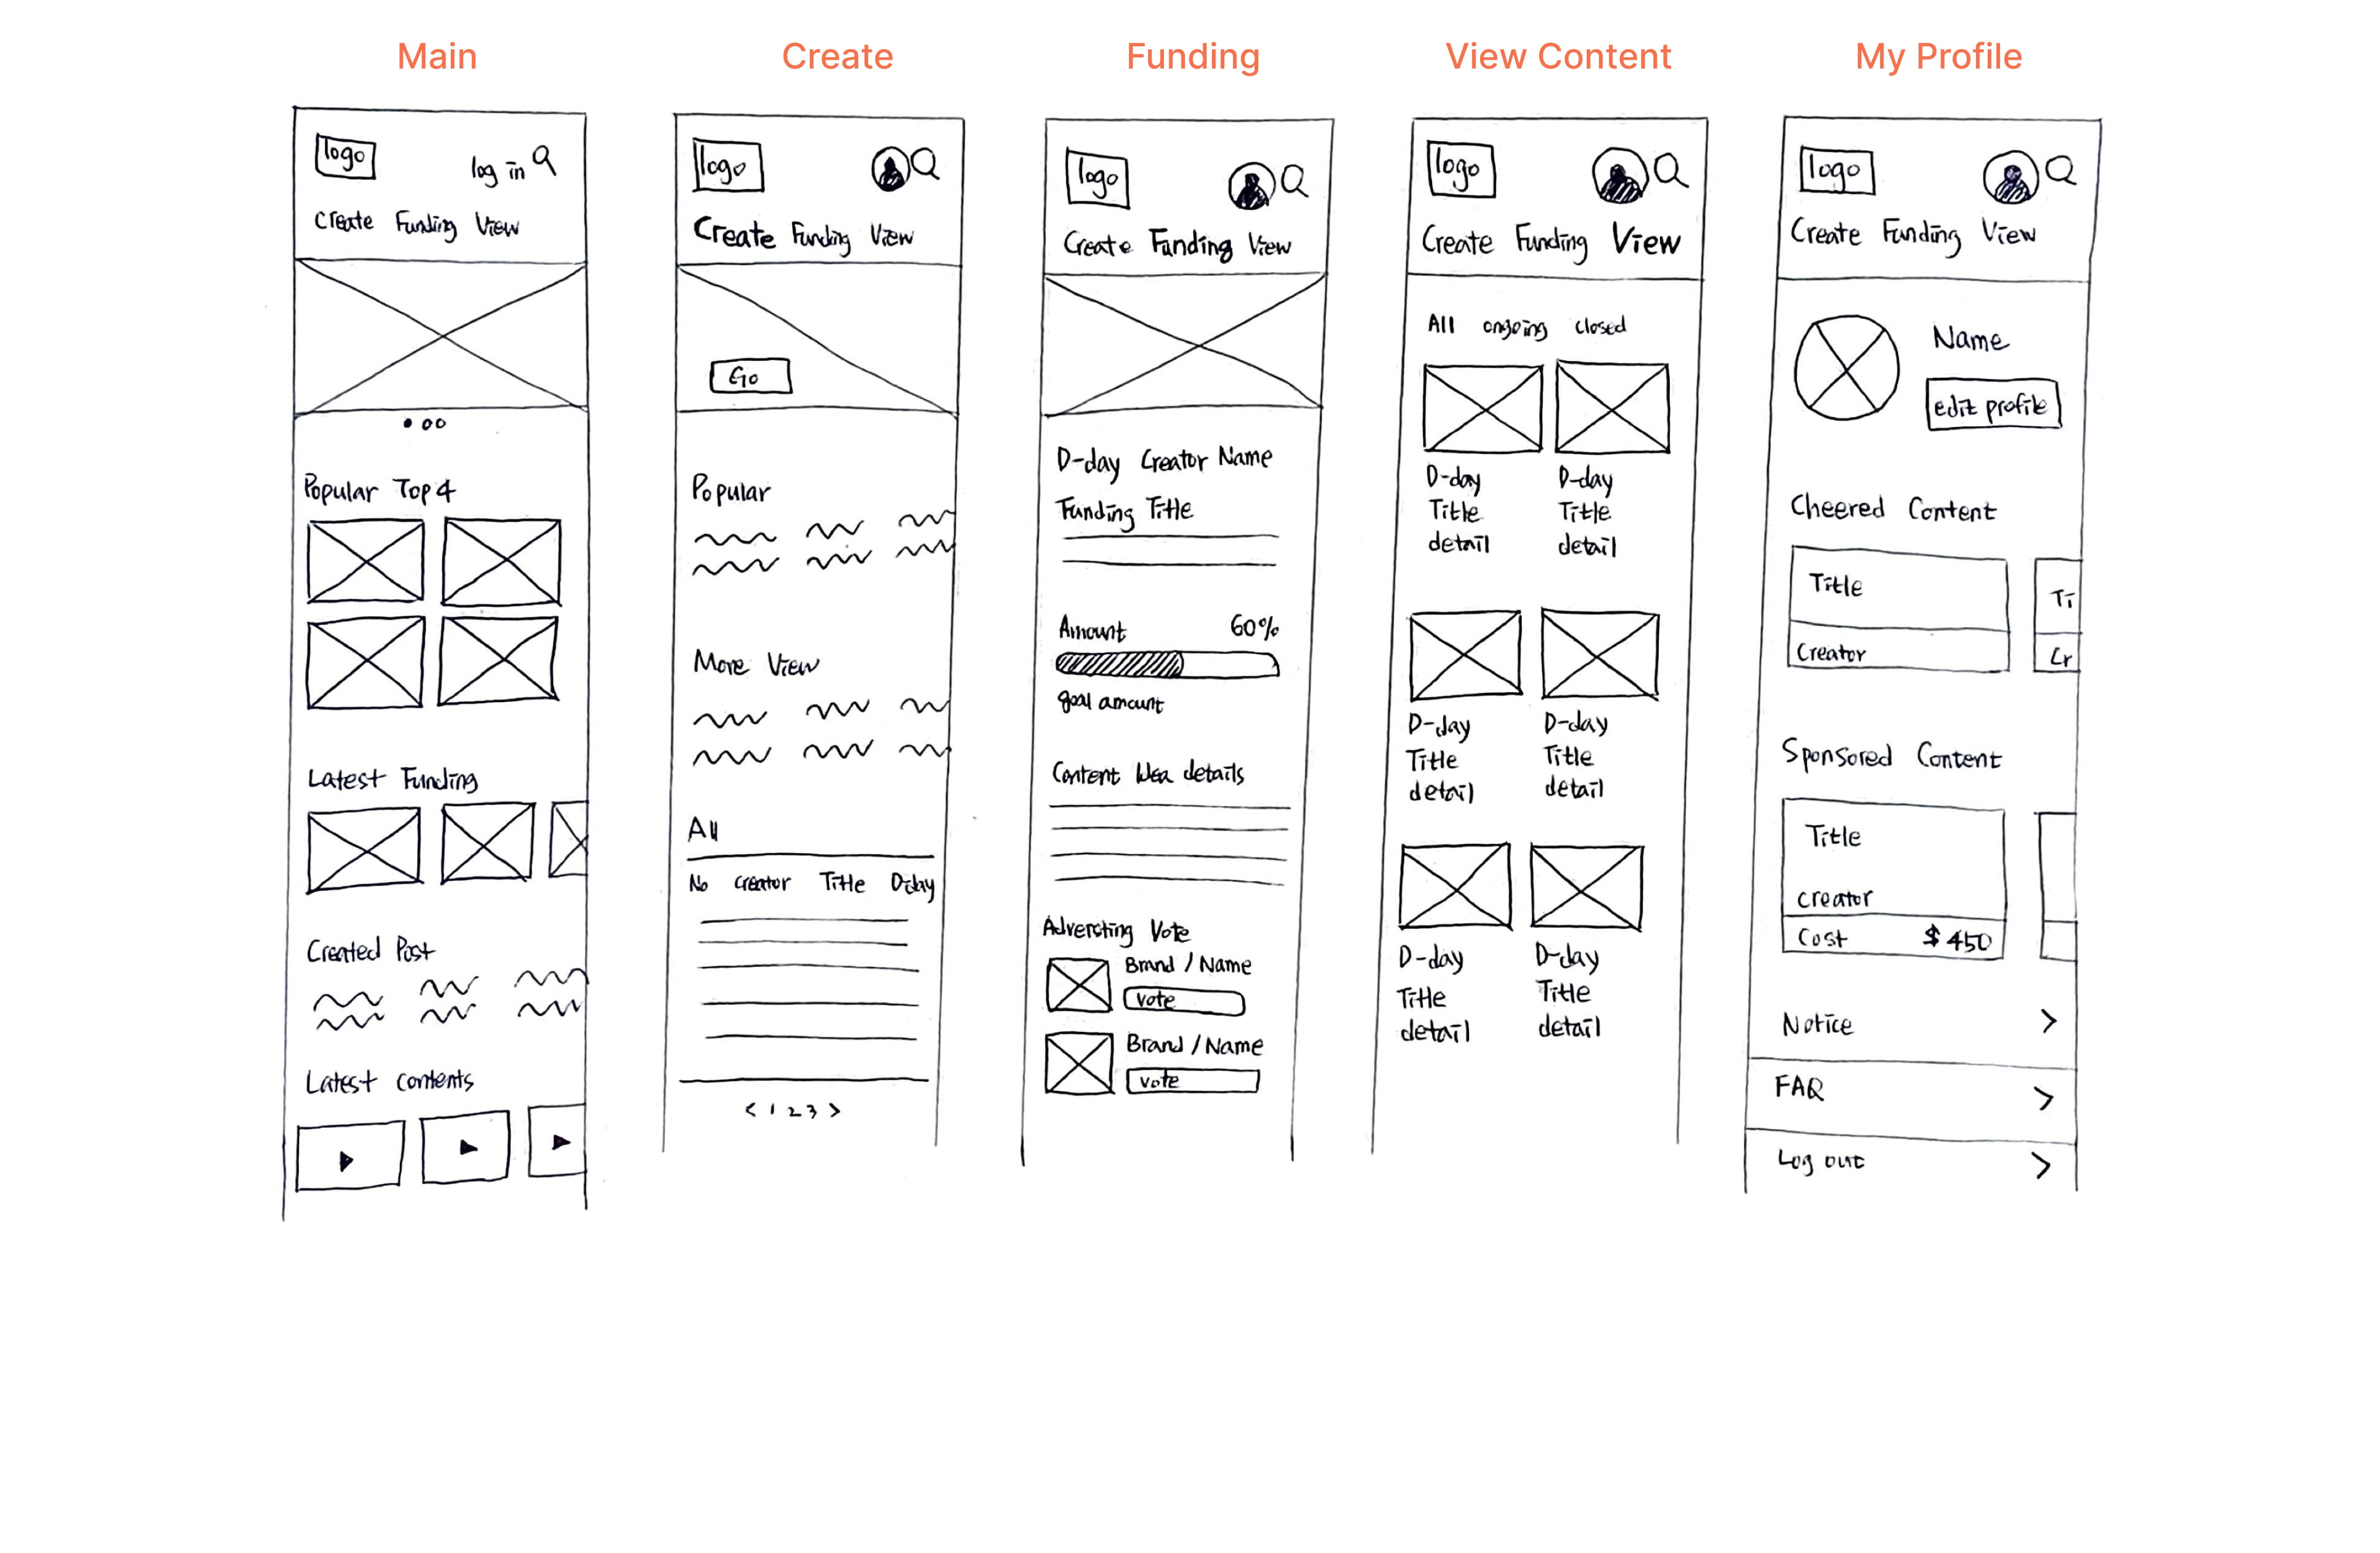 Main
logo
log in
Create Funding View
Popular Top 4
Latest Funding
Created Post
Latest contents
Create
logo
Create Funding View
Go
Popular
More View
All
No creator Title D-day
< 1 2 3 >
Funding
logo
Create Funding View
D-day Creator Name
Funding Title
Amount 60%
goal amount
Content Idea details
Adversting Vote
Brand / Name
vote
Brand / Name
vote
View Content
logo
Create Funding View
All ongoing closed
D-day D-day
Title Title
detail detail
D-day D-day
Title Title
detail detail
D-day D-day
Title Title
detail detail
My Profile
logo
Create Funding View
Name
edit profile
Cheered Content
Title Ti
Creator Cr
Sponsored Content
Title
creator
Cost $450
Notice >
FAQ >
Log out >